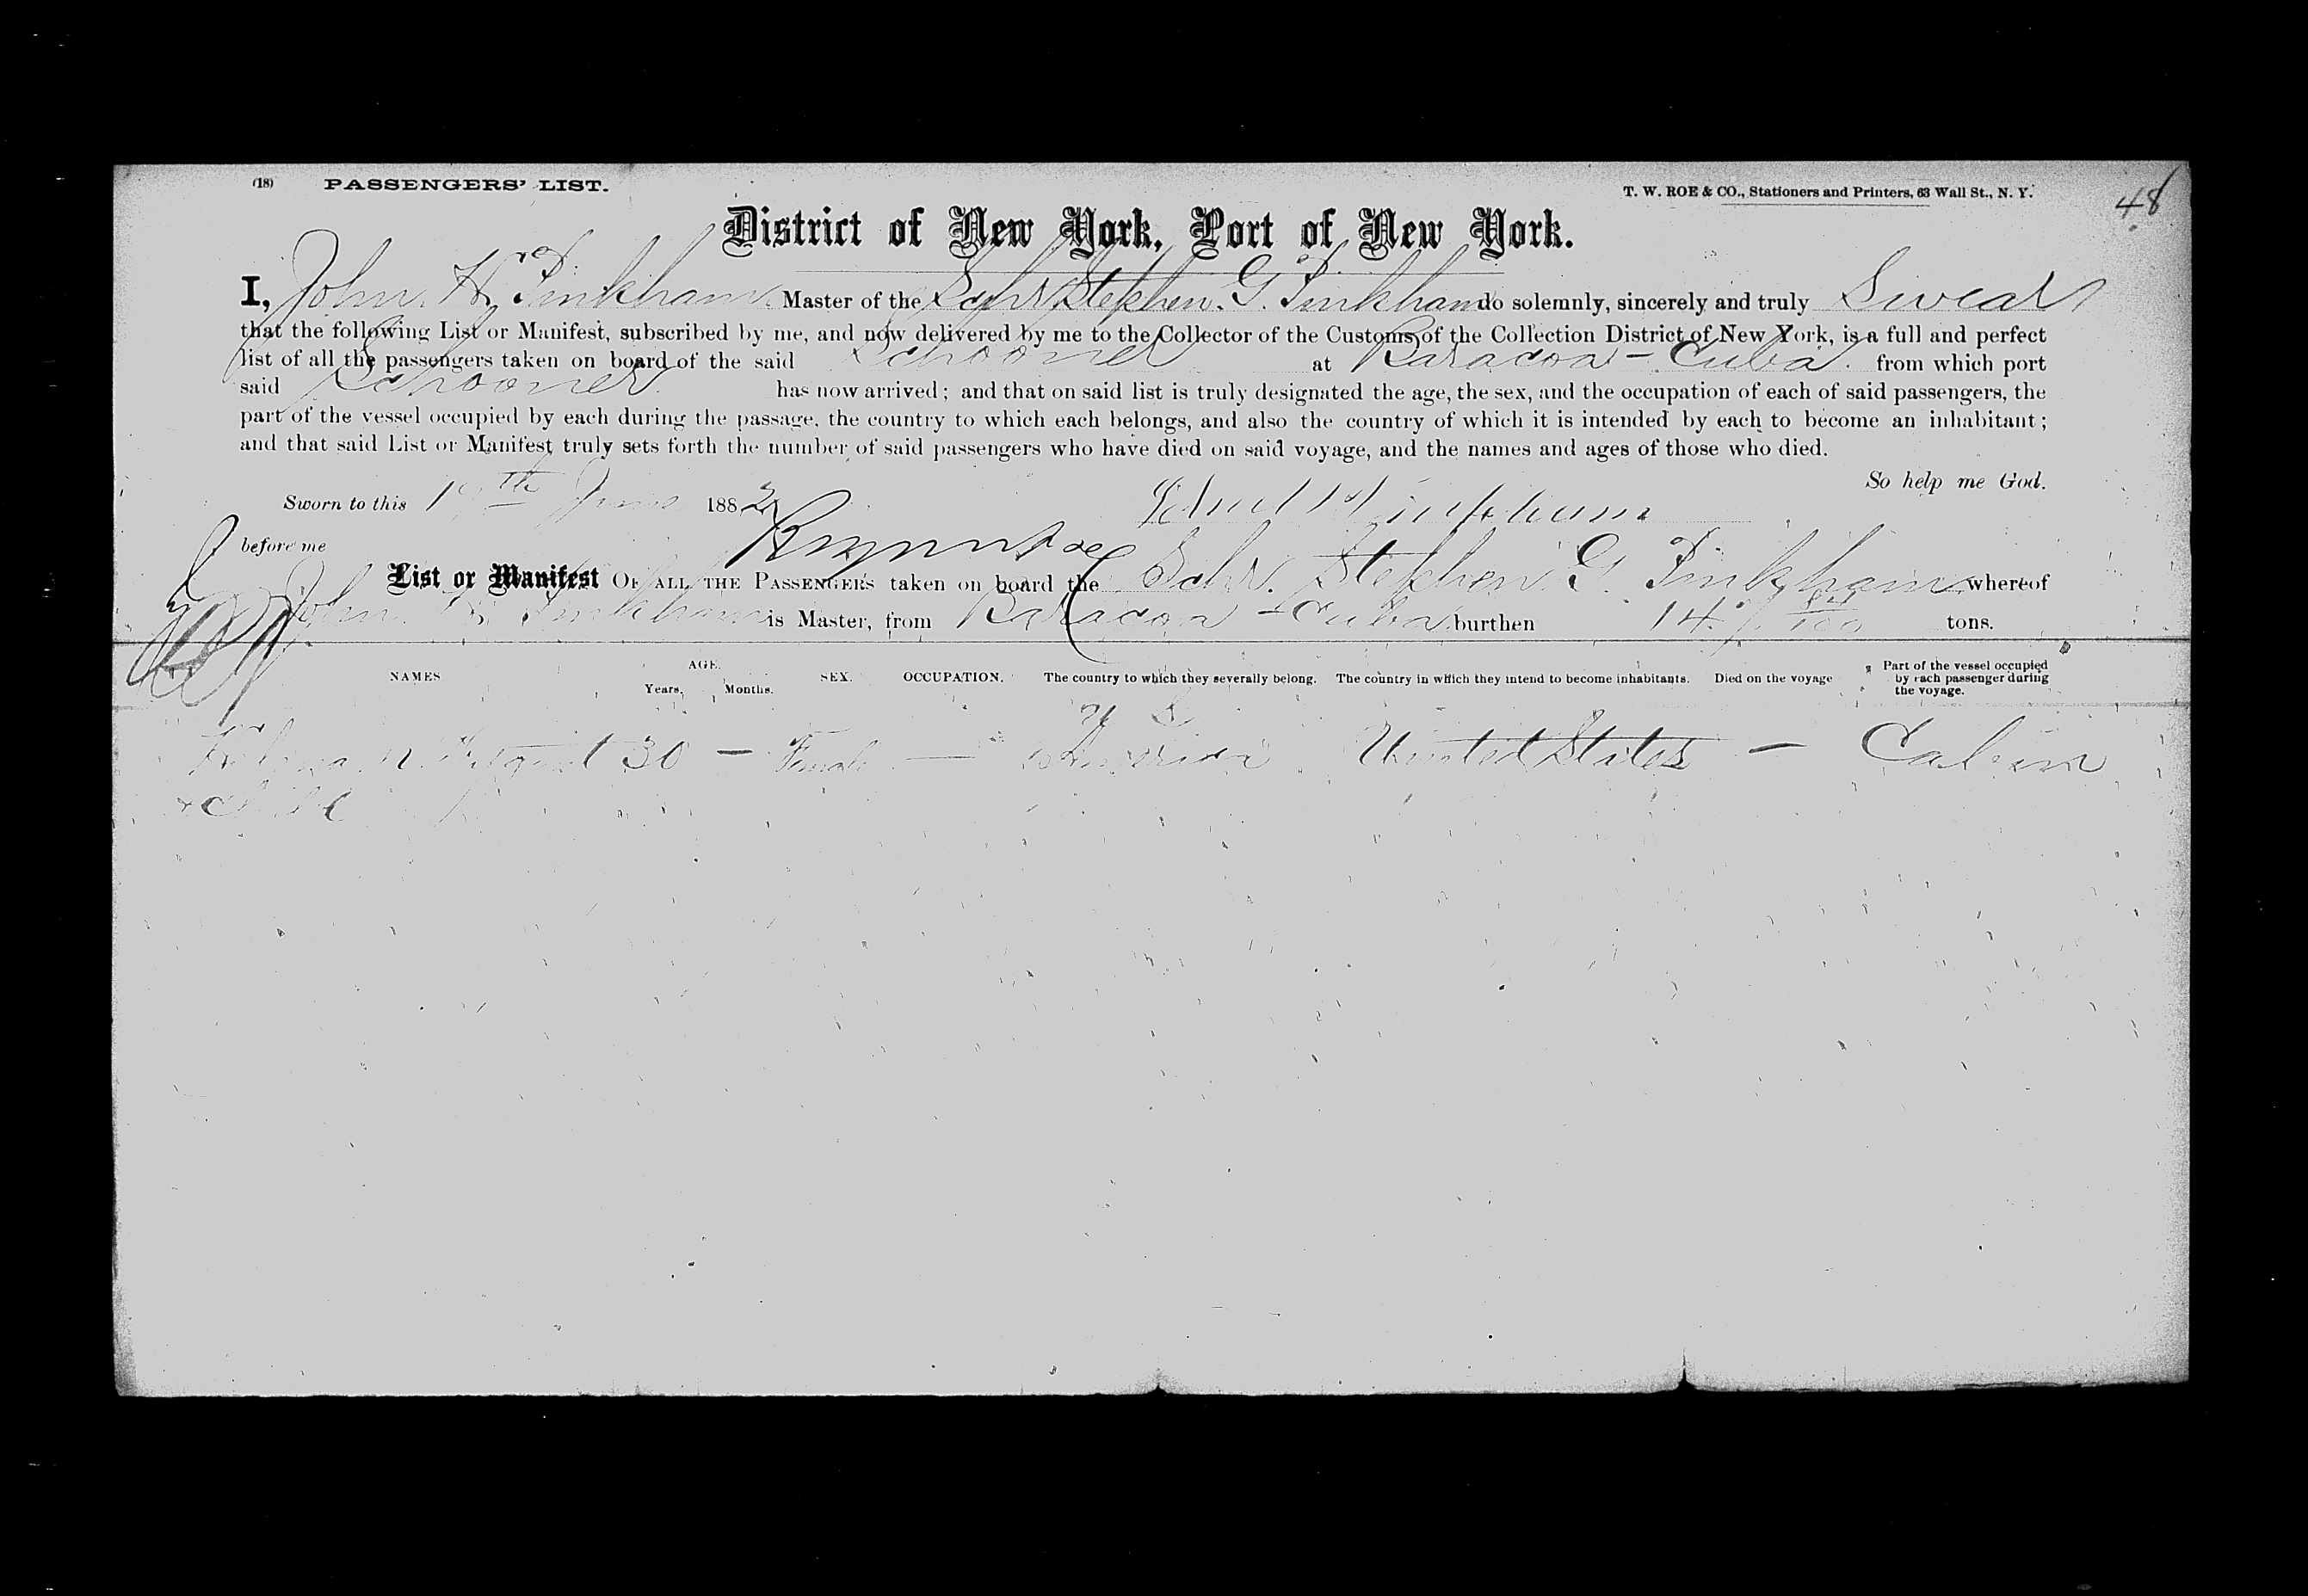 (18) PASSENGERS' LIST. T. W. ROE & CO., Stationers and Printers, 63 Wall St., N. Y. 48
District of New York, Port of New York.
I, John H. Pinkham Master of the Schr Stephen G. Pinkham do solemnly, sincerely and truly Swear
that the following List or Manifest, subscribed by me, and now delivered by me to the Collector of the Customs of the Collection District of New York, is a full and perfect
list of all the passengers taken on board of the said Schooner at Baracoa - Cuba from which port
said Schooner has now arrived; and that on said list is truly designated the age, the sex, and the occupation of each of said passengers, the
part of the vessel occupied by each during the passage, the country to which each belongs, and also the country of which it is intended by each to become an inhabitant;
and that said List or Manifest truly sets forth the number of said passengers who have died on said voyage, and the names and ages of those who died.
So help me God.
Sworn to this June 1882 Pinkham
before me
List or Manifest OF ALL THE PASSENGERS taken on board the Schr. Stephen G. Pinkham whereof
John Pinkham is Master, from Baracoa - Cuba burthen tons.
NAMES AGE. Years. Months. SEX. OCCUPATION. The country to which they severally belong. The country in which they intend to become inhabitants. Died on the voyage Part of the vessel occupied by each passenger during the voyage.
30 — Female — America United States — Cabin